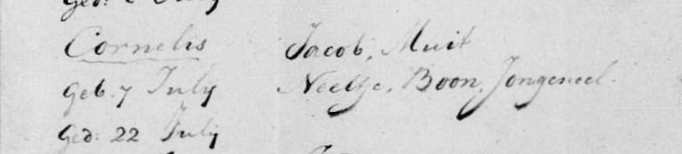 Cornelis Jacob, Muit
geb. 7 July Neeltje, Boon, Jongeneel.
Ged: 22 July